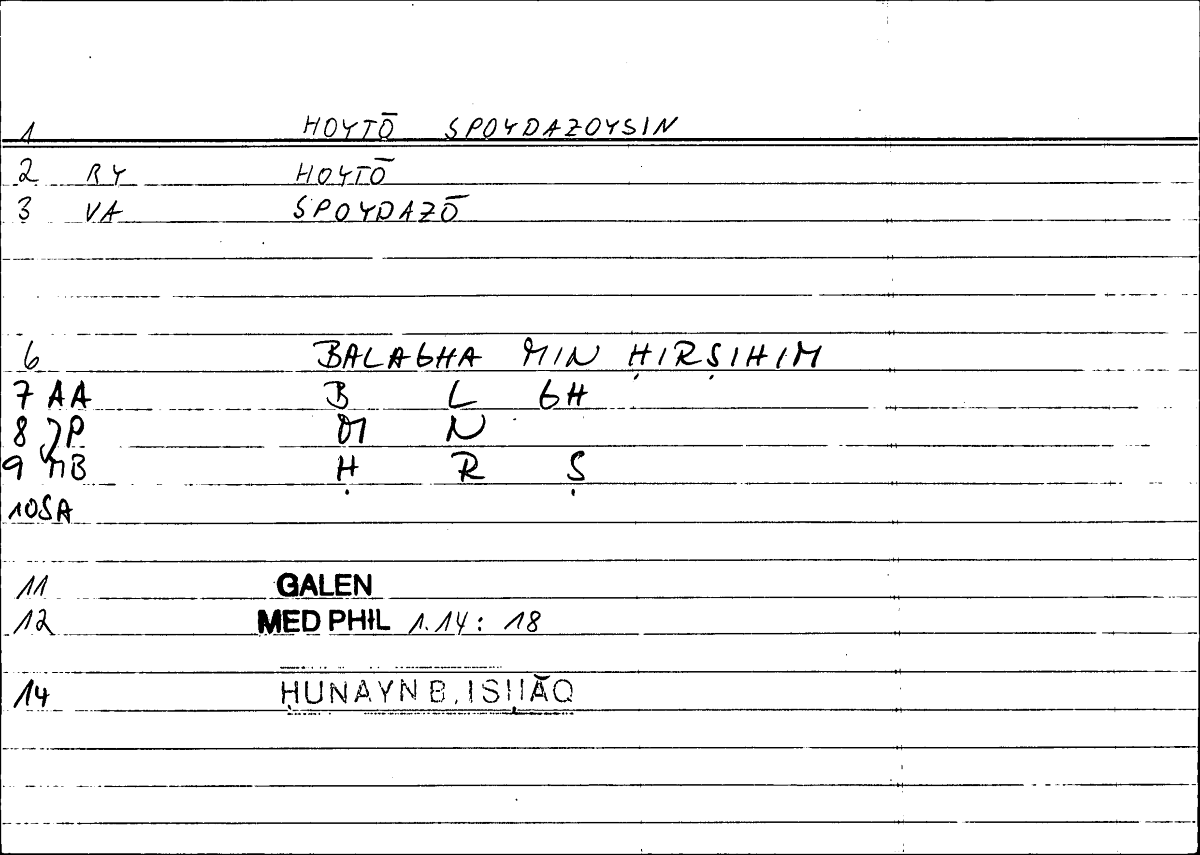 1 HOYTŌ SPOYDAZOYSIN
2 RY HOYTŌ
3 VA SPOYDAZŌ
6 BALAGHA MIN ḤIRṢIHIM
7 AA B L GH
8 JP M N
9 MB Ḥ R Ṣ
10 SA
11 GALEN
12 MED PHIL 1.14: 18
14 ḤUNAYN B. ISḤĀQ